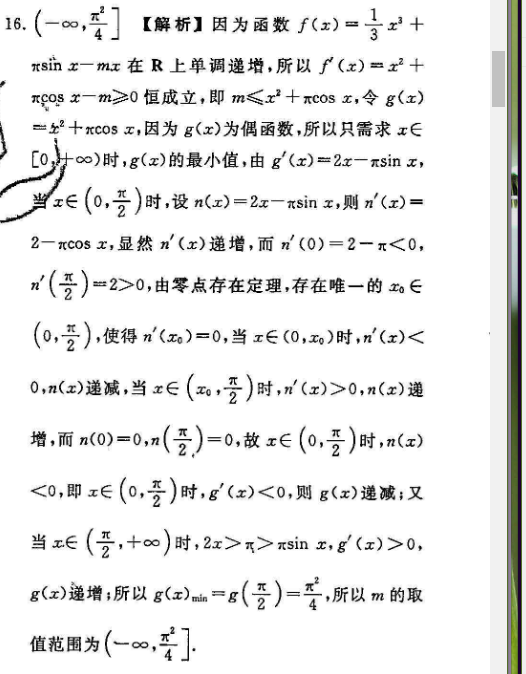 16. (−∞, π²/4] 【解析】因为函数 f(x)＝1/3 x³＋
πsin x－mx 在 R 上单调递增,所以 f′(x)＝x²＋
πcos x－m≥0 恒成立,即 m≤x²＋πcos x,令 g(x)
＝x²＋πcos x,因为 g(x)为偶函数,所以只需求 x∈
[0,＋∞)时,g(x)的最小值,由 g′(x)＝2x－πsin x,
当 x∈(0, π/2)时,设 n(x)＝2x－πsin x,则 n′(x)＝
2－πcos x,显然 n′(x)递增,而 n′(0)＝2－π<0,
n′(π/2)＝2>0,由零点存在定理,存在唯一的 x₀∈
(0, π/2),使得 n′(x₀)＝0,当 x∈(0,x₀)时,n′(x)<
0,n(x)递减,当 x∈(x₀, π/2)时,n′(x)>0,n(x)递
增,而 n(0)＝0,n(π/2)＝0,故 x∈(0, π/2)时,n(x)
<0,即 x∈(0, π/2)时,g′(x)<0,则 g(x)递减;又
当 x∈(π/2,＋∞)时,2x>π>πsin x,g′(x)>0,
g(x)递增;所以 g(x)min＝g(π/2)＝π²/4,所以 m 的取
值范围为(−∞, π²/4].